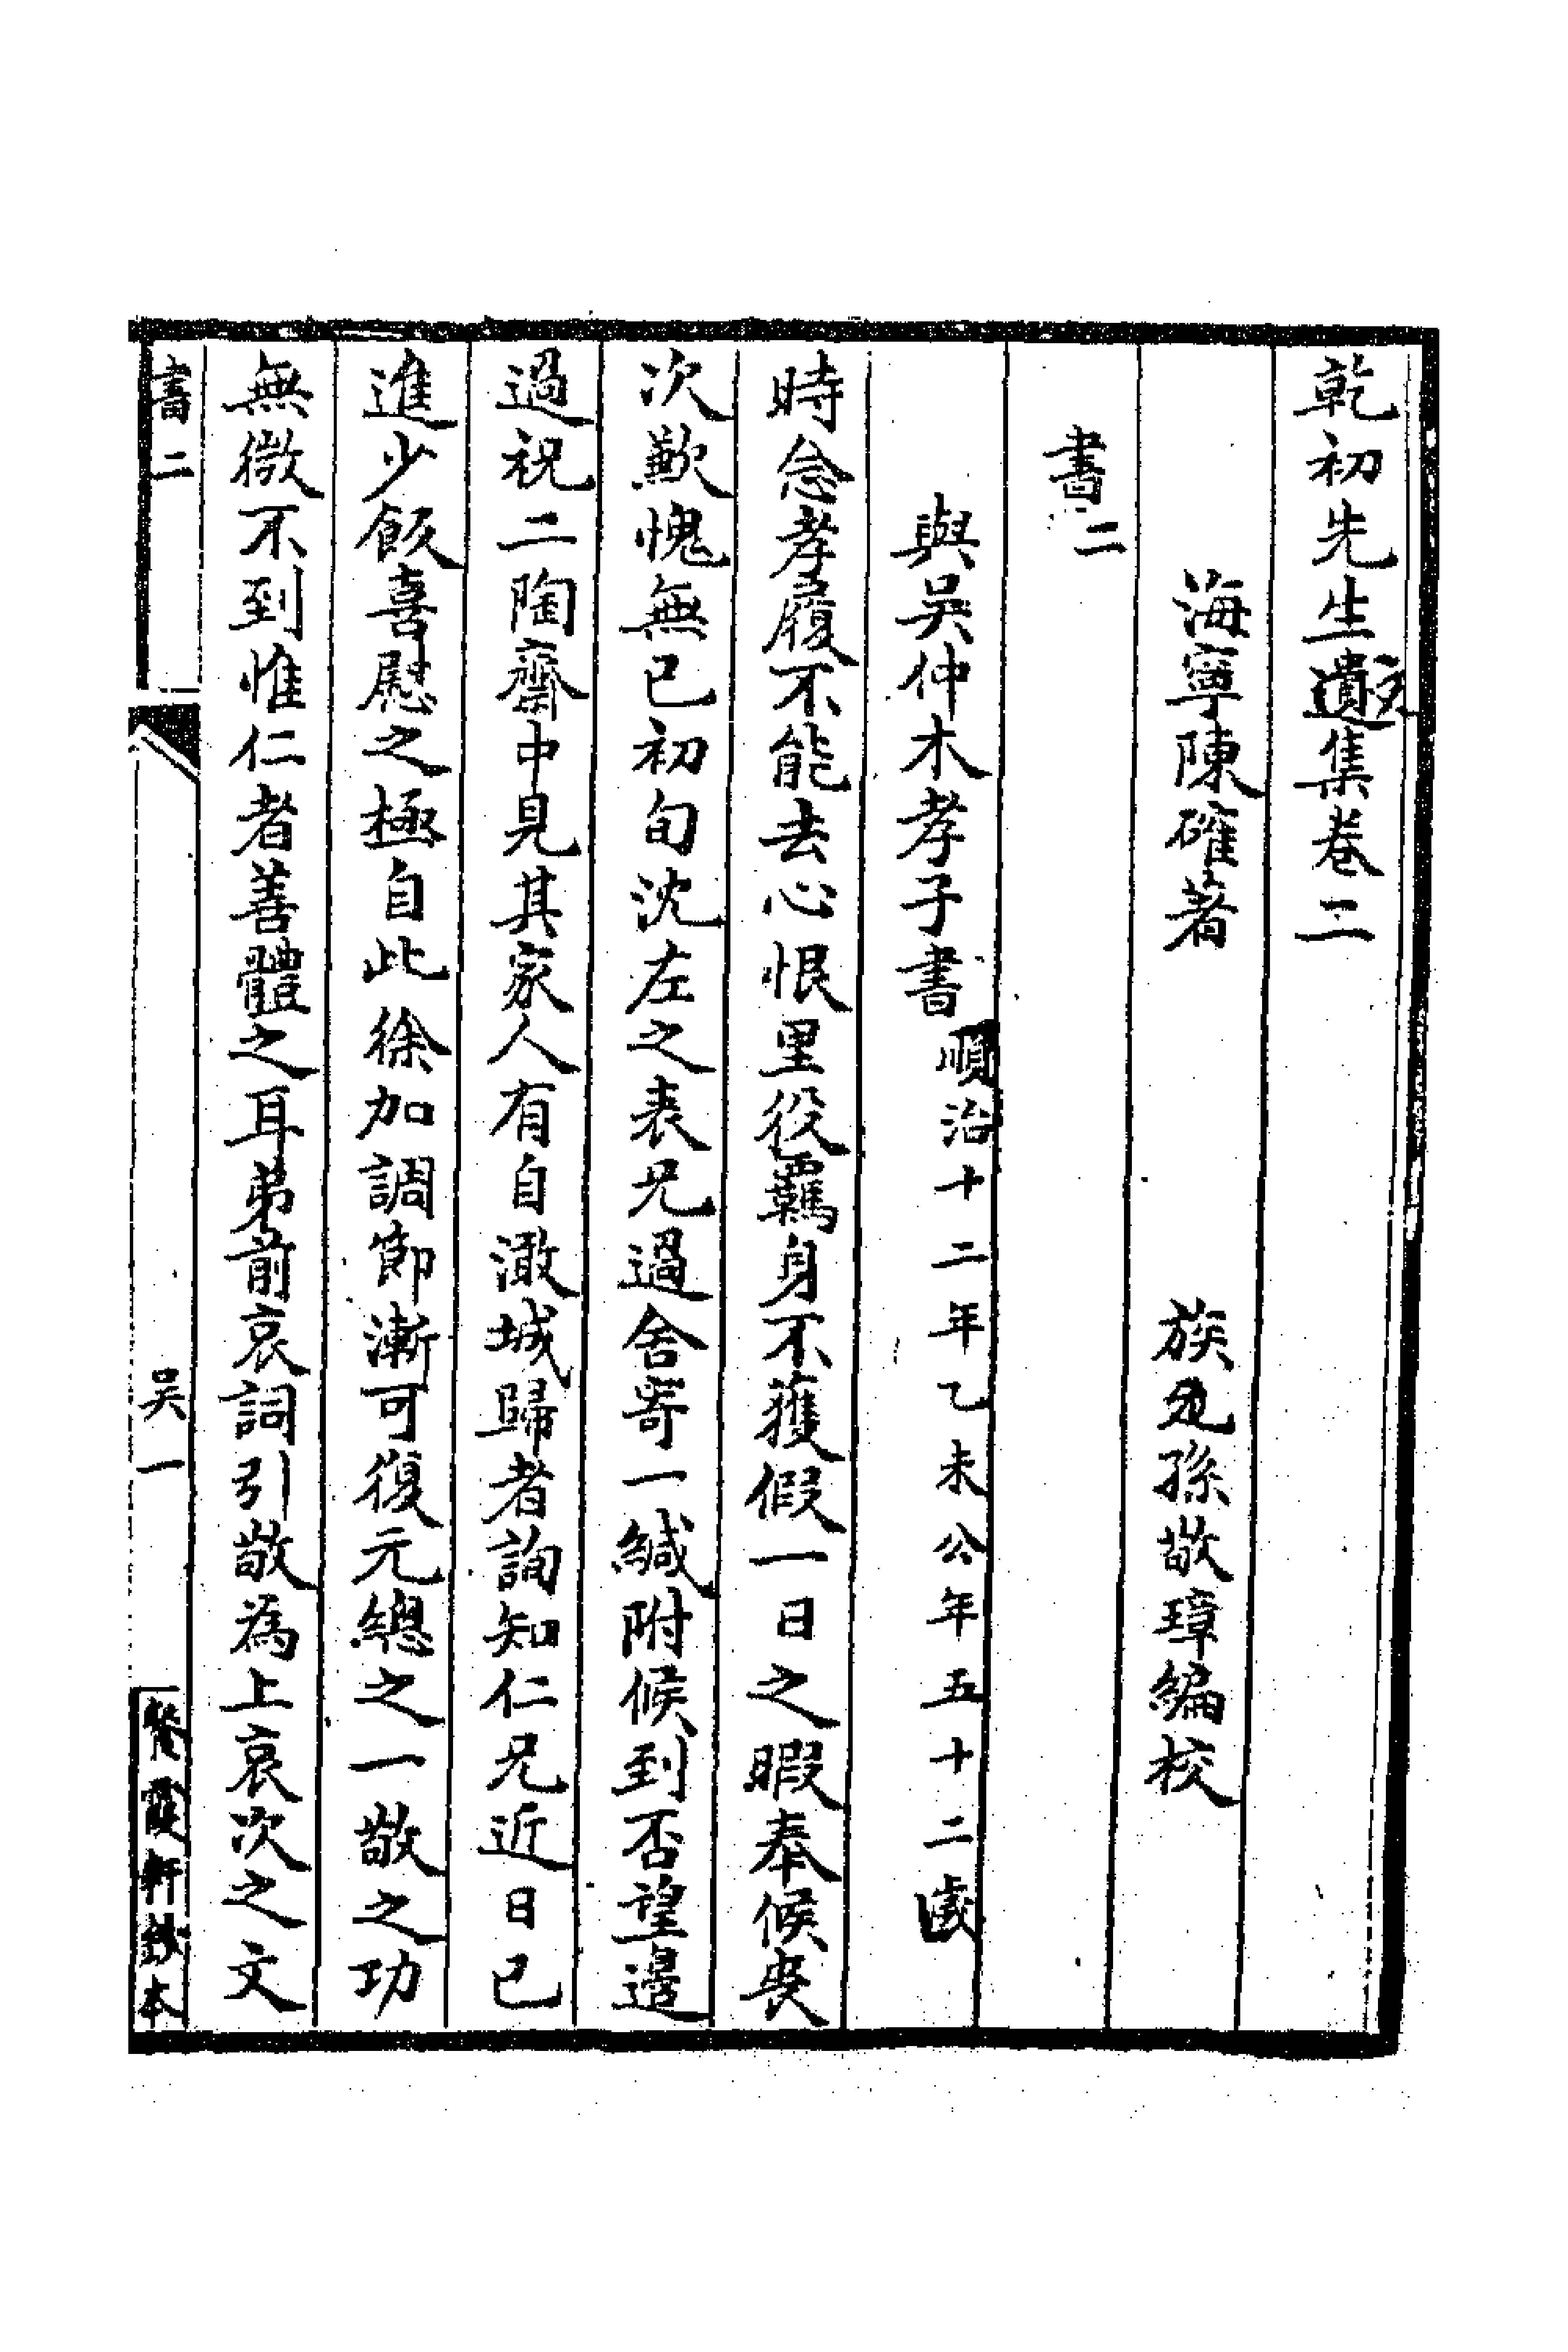 乾初先生遺文集卷二
海寧陳確著 族孫敬璋編校
書二
與吳仲木孝子書 順治十二年乙未公年五十二歲
時念孝履不能去心恨里役羈身不獲假一日之暇奉候喪
次歉愧無已初旬沈左之表兄過舍寄一緘附候到否望邊
過祝二陶齋中見其家人有自澉城歸者詢知仁兄近日已
進少飯喜慰之極自此徐加調節漸可復元總之一敬之功
無微不到惟仁者善體之耳弟前哀詞引敬為上哀次之文
書二 吳一 餐霞軒鈔本